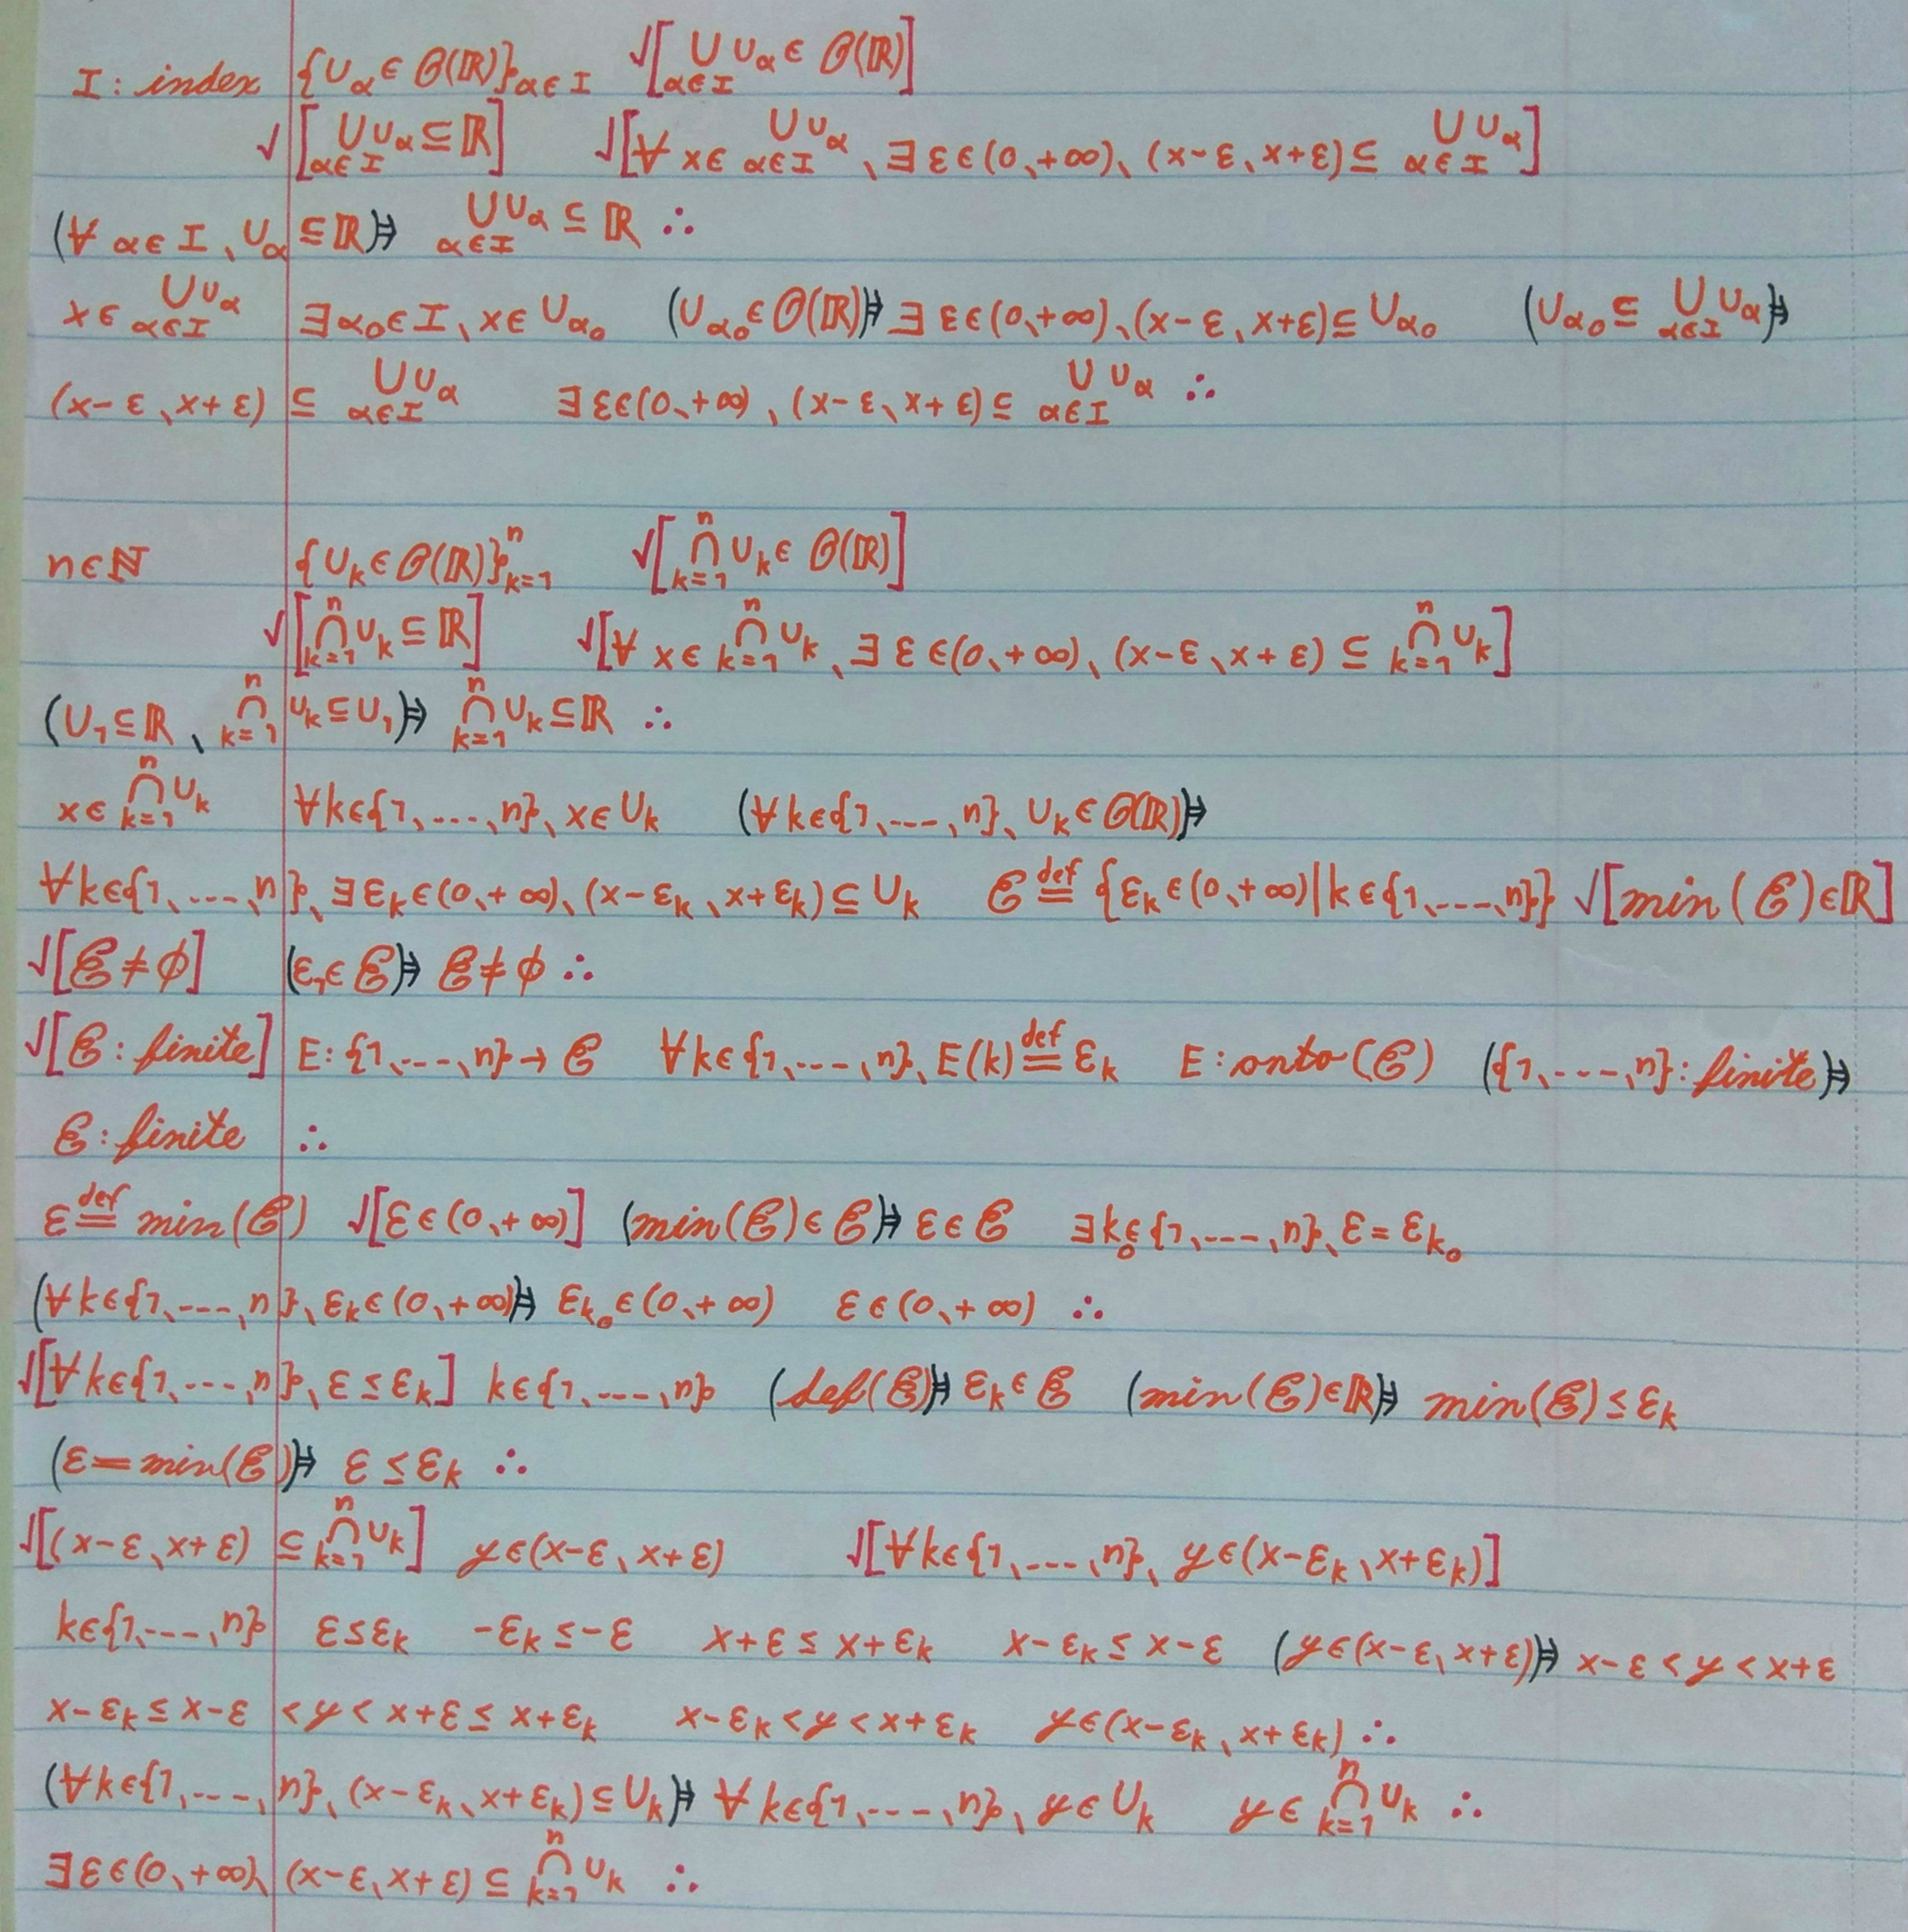 I: index {U_α ∈ 𝒪(ℝ)}_{α∈I} √[⋃_{α∈I} U_α ∈ 𝒪(ℝ)]
√[⋃_{α∈I} U_α ⊆ ℝ] √[∀ x ∈ ⋃_{α∈I} U_α, ∃ ε∈(0,+∞), (x-ε, x+ε) ⊆ ⋃_{α∈I} U_α]
(∀ α∈I, U_α ⊆ ℝ)⇒ ⋃_{α∈I} U_α ⊆ ℝ ∴
x ∈ ⋃_{α∈I} U_α ∃ α₀∈I, x∈U_{α₀} (U_{α₀} ∈ 𝒪(ℝ))⇒ ∃ ε∈(0,+∞), (x-ε, x+ε) ⊆ U_{α₀} (U_{α₀} ⊆ ⋃_{α∈I} U_α)⇒
(x-ε, x+ε) ⊆ ⋃_{α∈I} U_α ∃ ε∈(0,+∞), (x-ε, x+ε) ⊆ ⋃_{α∈I} U_α ∴
n∈ℕ {U_k ∈ 𝒪(ℝ)}_{k=1}^n √[⋂_{k=1}^n U_k ∈ 𝒪(ℝ)]
√[⋂_{k=1}^n U_k ⊆ ℝ] √[∀ x ∈ ⋂_{k=1}^n U_k, ∃ ε∈(0,+∞), (x-ε, x+ε) ⊆ ⋂_{k=1}^n U_k]
(U_1 ⊆ ℝ, ⋂_{k=1}^n U_k ⊆ U_1)⇒ ⋂_{k=1}^n U_k ⊆ ℝ ∴
x ∈ ⋂_{k=1}^n U_k ∀k∈{1,...,n}, x∈U_k (∀k∈{1,...,n}, U_k ∈ 𝒪(ℝ))⇒
∀k∈{1,...,n}, ∃ε_k∈(0,+∞), (x-ε_k, x+ε_k) ⊆ U_k ℰ ≝ {ε_k∈(0,+∞)|k∈{1,...,n}} √[min(ℰ)∈ℝ]
√[ℰ≠∅] (ε_1∈ℰ)⇒ ℰ≠∅ ∴
√[ℰ: finite] E: {1,...,n} → ℰ ∀k∈{1,...,n}, E(k) ≝ ε_k E: onto(ℰ) ({1,...,n}: finite)⇒
ℰ: finite ∴
ε ≝ min(ℰ) √[ε∈(0,+∞)] (min(ℰ)∈ℰ)⇒ ε∈ℰ ∃k₀∈{1,...,n}, ε=ε_{k₀}
(∀k∈{1,...,n}, ε_k∈(0,+∞))⇒ ε_{k₀}∈(0,+∞) ε∈(0,+∞) ∴
√[∀k∈{1,...,n}, ε≤ε_k] k∈{1,...,n} (def(ℰ))⇒ ε_k∈ℰ (min(ℰ)∈ℝ)⇒ min(ℰ)≤ε_k
(ε=min(ℰ))⇒ ε≤ε_k ∴
√[(x-ε, x+ε) ⊆ ⋂_{k=1}^n U_k] y∈(x-ε, x+ε) √[∀k∈{1,...,n}, y∈(x-ε_k, x+ε_k)]
k∈{1,...,n} ε≤ε_k -ε_k≤-ε x+ε≤x+ε_k x-ε_k≤x-ε (y∈(x-ε, x+ε))⇒ x-ε<y<x+ε
x-ε_k≤x-ε<y<x+ε≤x+ε_k x-ε_k<y<x+ε_k y∈(x-ε_k, x+ε_k) ∴
(∀k∈{1,...,n}, (x-ε_k, x+ε_k)⊆U_k)⇒ ∀k∈{1,...,n}, y∈U_k y∈⋂_{k=1}^n U_k ∴
∃ε∈(0,+∞), (x-ε, x+ε) ⊆ ⋂_{k=1}^n U_k ∴